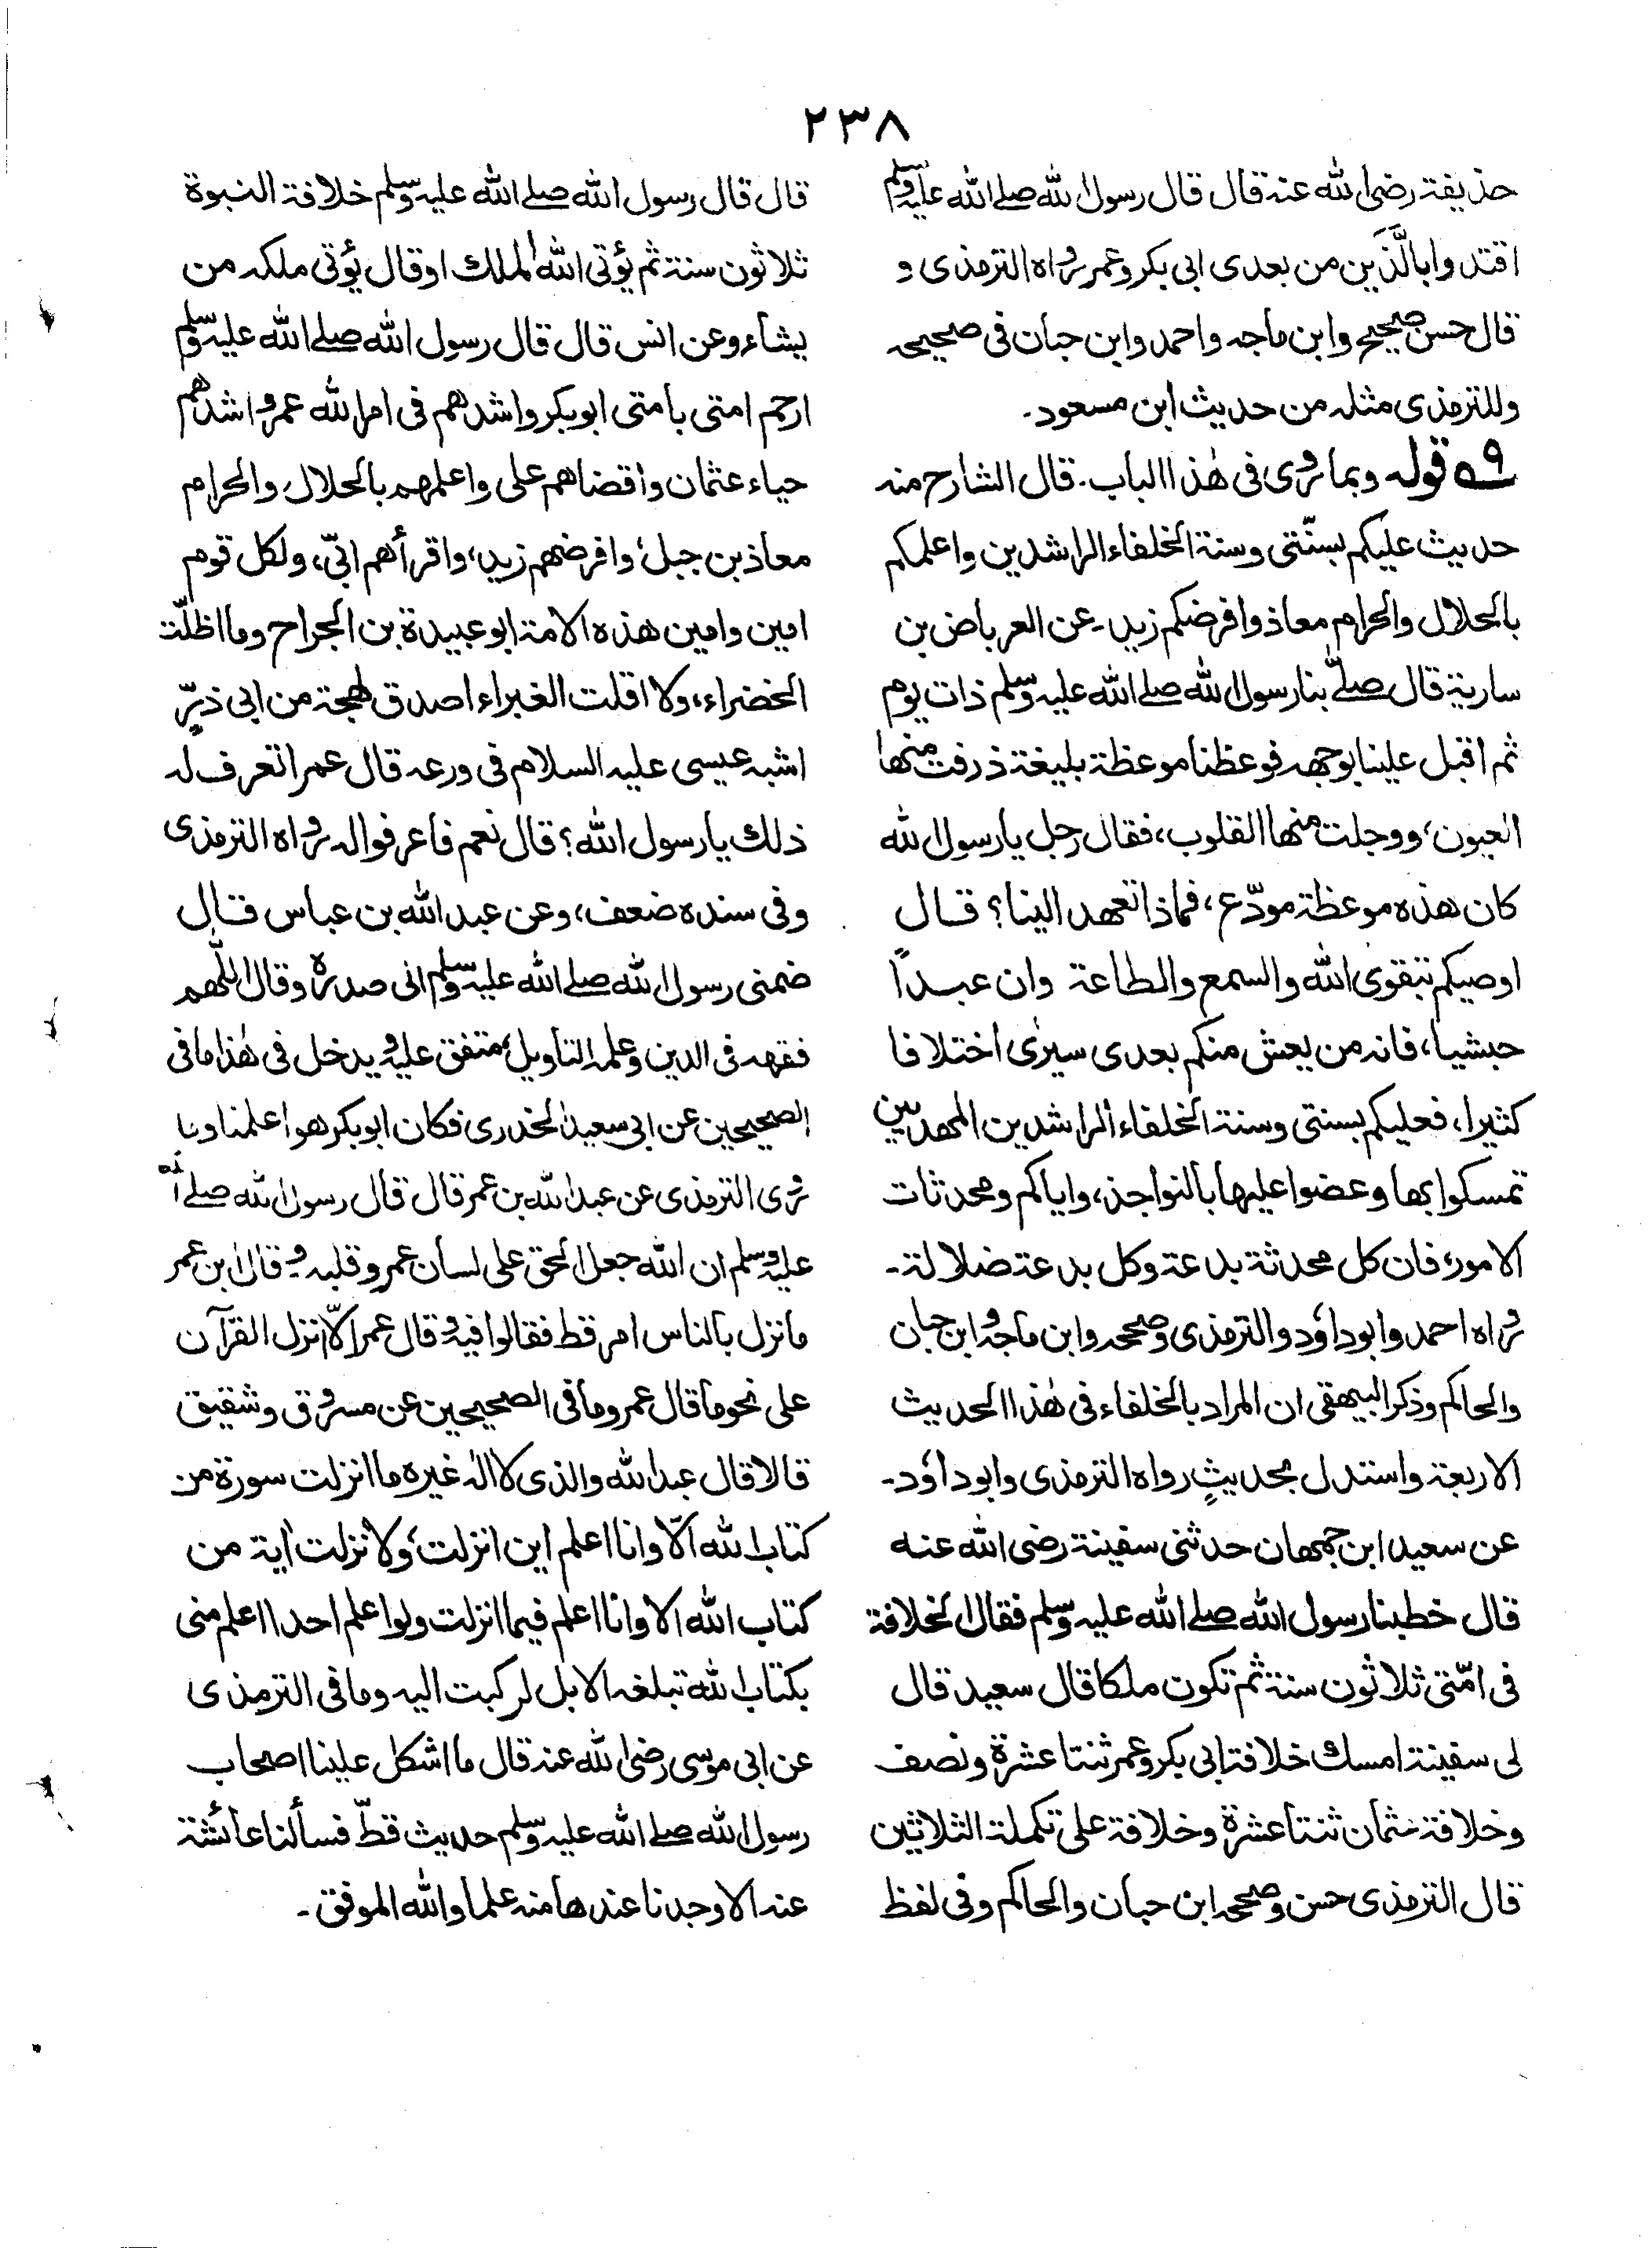 ٢٣٨
حذيفة رضى الله عنه قال قال رسول الله صلے الله عليه وسلم
اقتدوا بالَّذَين من بعدى ابى بكر وعمر رواه الترمذى و
قال حسن صحيح وابن ماجه واحمد وابن حبان فى صحيحه
وللترمذى مثله من حديث ابن مسعود۔
۹ ـه قوله وبما روى فى هٰذا الباب۔ قال الشارح منه
حديث عليكم بسنّتى وسنة الخلفاء الراشدين واعلمكم
بالحلال والحرام معاذ وافرضكم زيد۔ عن العرباض بن
سارية قال صلّٰے بنا رسول الله صلے الله عليه وسلم ذات يوم
ثم اقبل علينا بوجهه فوعظنا موعظة بليغة ذرفت منها
العيون، ووجلت منها القلوب، فقال رجل يا رسول الله
كان هذه موعظة مودّع، فماذا تعهد الينا؟ قال
اوصيكم بتقوى الله والسمع والطاعة وان عبداً
حبشيا، فانه من يعش منكم بعدى سيرٰى اختلافا
كثيرا، فعليكم بسنتى وسنة الخلفاء الراشدين المهديين
تمسكوا بها وعضوا عليها بالنواجذ، واياكم ومحدثات
الامور، فان كل محدثة بدعة وكل بدعة ضلالة۔
رواه احمد وابوداؤد والترمذى وصححه وابن ماجه وابن حبان
والحاكم وذكر البيهقى ان المراد بالخلفاء فى هٰذا الحديث
الاربعة واستدل بحديثٍ رواه الترمذى وابوداؤد۔
عن سعيد ابن جمهان حدثنى سفينة رضى الله عنه
قال خطبنا رسول الله صلے الله عليه وسلم فقال الخلافة
فى امّتى ثلاثون سنة ثم تكون ملكا قال سعيد قال
لى سفينة امسك خلافة ابى بكر وعمر ثنتا عشرة ونصف
وخلافة عثمان ثنتا عشرة وخلافة على تكملة الثلاثين
قال الترمذى حسن وصححه ابن حبان والحاكم وفى لفظ
قال قال رسول الله صلے الله عليه وسلم خلافة النبوة
ثلاثون سنة ثم يؤتى الله الملك او قال يؤتى ملكه من
يشاء وعن انس قال قال رسول الله صلے الله عليه وسلم
ارحم امتى بامتى ابوبكر واشدهم فى امر الله عمر واشدهم
حياء عثمان واقضاهم على واعلمهم بالحلال والحرام
معاذ بن جبل، وافرضهم زيد، واقرأهم ابىّ، ولكل قوم
امين وامين هذه الامة ابو عبيدة بن الجراح وما اظلّت
الخضراء، ولا اقلت الغبراء اصدق لهجة من ابى ذرّ
اشبه عيسى عليه السلام فى ورعه قال عمر اتعرف له
ذلك يا رسول الله؟ قال نعم فاعرفوا له رواه الترمذى
وفى سنده ضعف، وعن عبد الله بن عباس قال
ضمنى رسول الله صلے الله عليه وسلم الى صدره وقال اللّٰهم
فقهه فى الدين وعلمه التاويل، متفق عليه ويدخل فى هٰذا ما فى
الصحيحين عن ابى سعيد الخدرى فكان ابوبكر هو اعلمنا وبا
روى الترمذى عن عبد الله بن عمر قال قال رسول الله صلے الله
عليه وسلم ان الله جعل الحق على لسان عمر وقلبه و قال ابن عمر
ما نزل بالناس امر قط فقالوا فيه وقال عمر الّا نزل القرآن
على نحو ما قال عمر وما فى الصحيحين عن مسروق وشقيق
قالا قال عبد الله والذى لا الٰه غيره ما انزلت سورة من
كتاب الله الّا وانا اعلم اين انزلت، ولا نزلت اٰية من
كتاب الله الا وانا اعلم فيما انزلت ولو اعلم احدا اعلم منى
بكتاب الله تبلغه الابل لركبت اليه وما فى الترمذى
عن ابى موسى رضى الله عنه قال ما اشكل علينا اصحاب
رسول الله صلے الله عليه وسلم حديث قطّ فسألنا عائشة
عنه الا وجدنا عندها منه علما والله الموفق۔